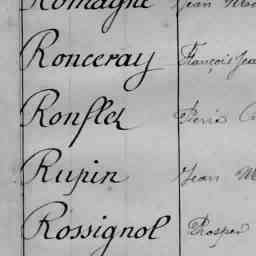 Romagne Jean
Ronceray François Jea
Ronflet Pierre
Rupin Jean M
Rossignol Prosper